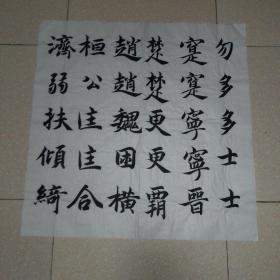 勿多多士士
寔寔寧寧晉
楚楚更更霸
趙趙魏困橫
桓公匡匡合
濟弱扶傾綺